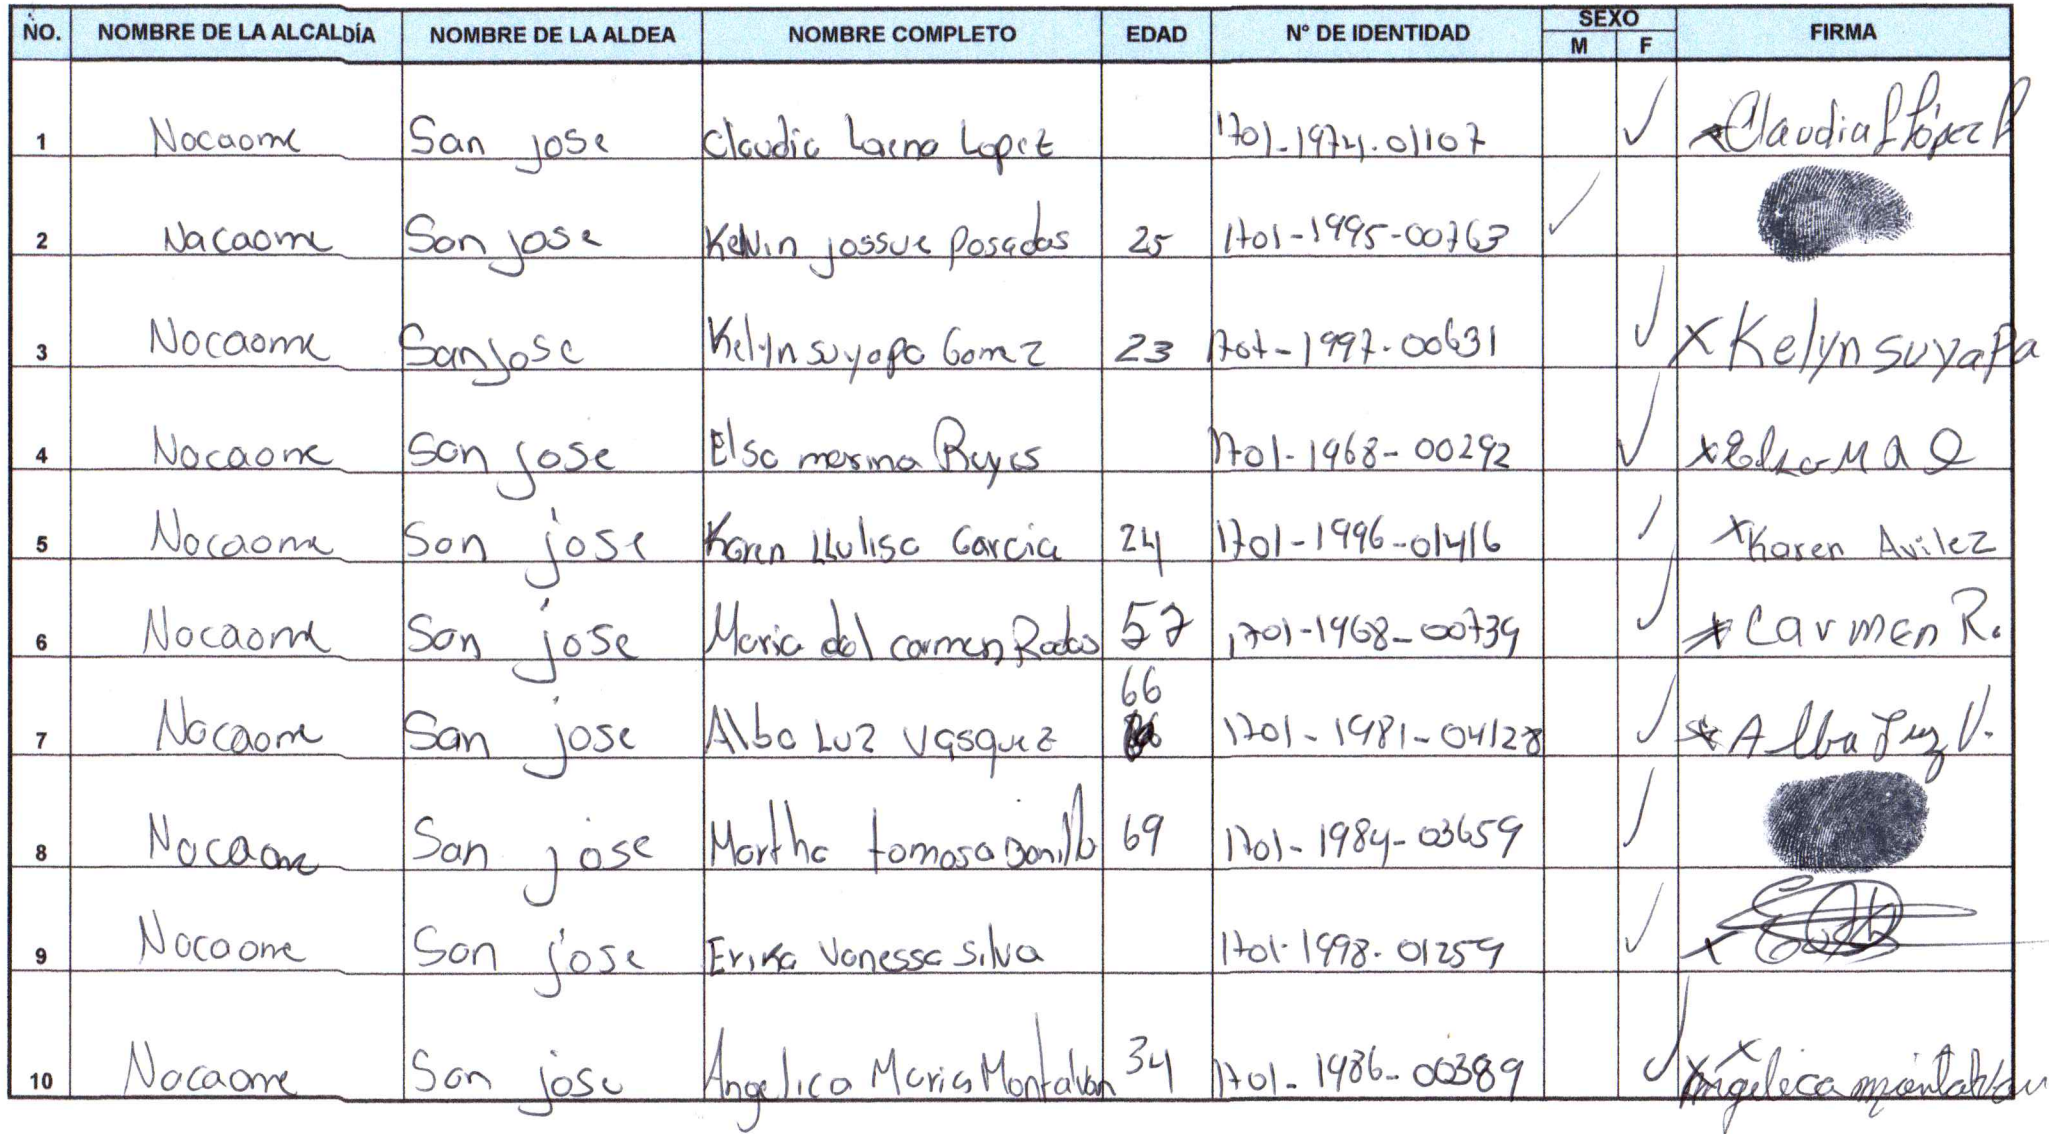 NO. NOMBRE DE LA ALCALDÍA NOMBRE DE LA ALDEA NOMBRE COMPLETO EDAD N° DE IDENTIDAD SEXO M F FIRMA
1 Nacaome San jose Claudia Lopez 1701-1974-01107 ✓ x Claudia L López
2 Nacaome San jose Kelvin jossue posadas 25 1701-1995-00763 ✓
3 Nacaome San Jose Kelyn suyapa Gomez 23 1701-1997-00631 ✓ x Kelyn suyapa
4 Nacaome San jose Elsa Reyes 1701-1968-00292 ✓ x Elsa M
5 Nacaome San jose Karen Garcia 24 1701-1996-01416 ✓ x Karen Avilez
6 Nacaome San jose Maria del carmen 57 1701-1968-00739 ✓ x Carmen R.
7 Nacaome San jose Alba Luz Vasquez 66 1701-1981-04128 ✓ x Alba Luz V.
8 Nacaome San jose Martha tomasa Bonilla 69 1701-1984-03659 ✓
9 Nacaome San jose Erika Vanessa Silva 1701-1998-01259 ✓ x
10 Nacaome San jose Angelica Maria Montalvan 34 1701-1986-00389 ✓ x Angelica